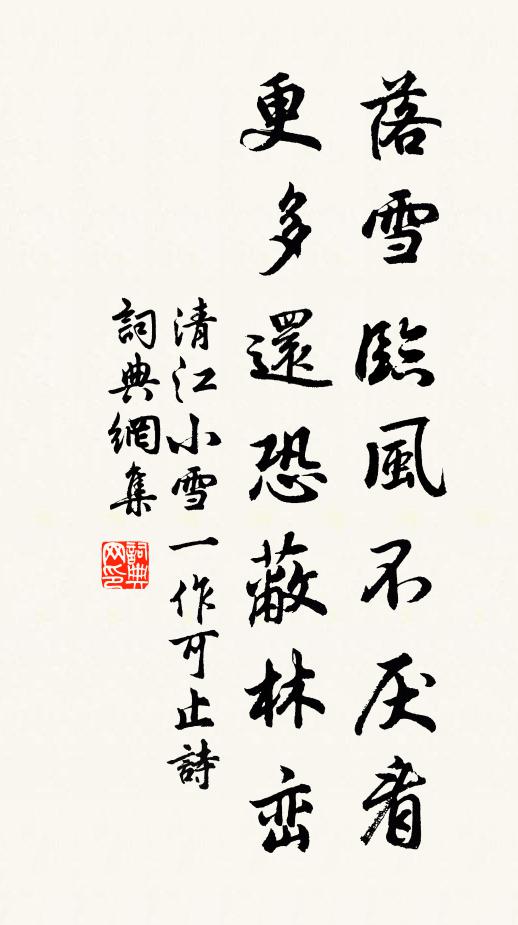 落雪臨風不厌看
更多還恐蔽林峦
清江小雪一作可止詩
詞典網集
詞典网印